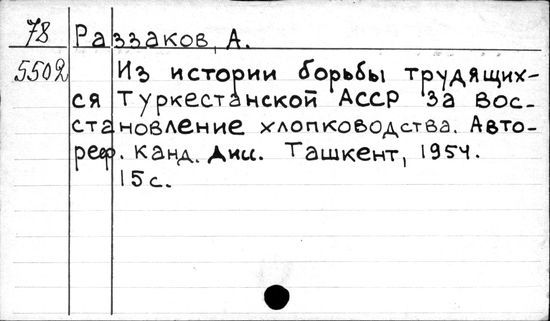 78 Раззаков, А.
5502 Из истории борьбы трудящих-
ся Туркестанской АССР за вос-
становление хлопководства. Авто-
реф. канд. дисс. Ташкент, 1954.
15 с.